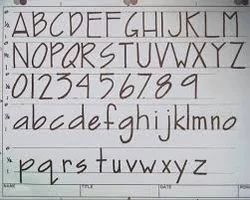 ABCDEFGHIJKLM
NOPQRSTUVWXYZ
0123456789
abcdefghijklmno
pqrstuvwxyz
NAME TITLE DATE